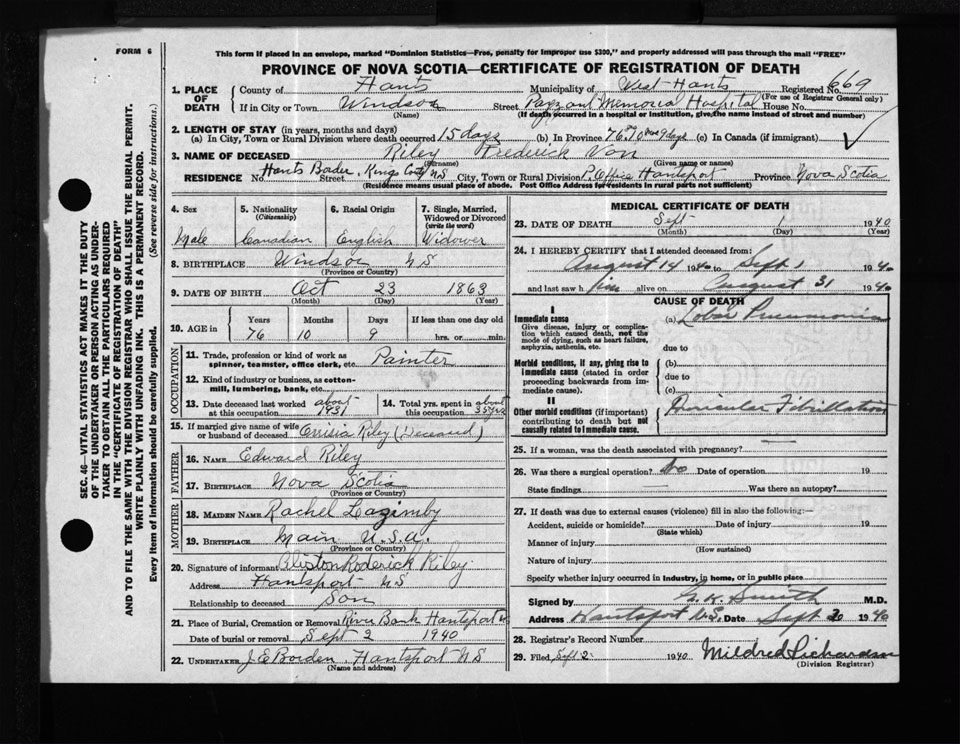 FORM 6
This form if placed in an envelope, marked "Dominion Statistics—Free, penalty for improper use $300," and properly addressed will pass through the mail "FREE"
PROVINCE OF NOVA SCOTIA—CERTIFICATE OF REGISTRATION OF DEATH
SEC. 46—VITAL STATISTICS ACT MAKES IT THE DUTY
OF THE UNDERTAKER OR PERSON ACTING AS UNDER-
TAKER TO OBTAIN ALL THE PARTICULARS REQUIRED
IN THE "CERTIFICATE OF REGISTRATION OF DEATH"
AND TO FILE THE SAME WITH THE DIVISION REGISTRAR WHO SHALL ISSUE THE BURIAL PERMIT.
WRITE PLAINLY WITH UNFADING INK. THIS IS A PERMANENT RECORD.
Every item of information should be carefully supplied. (See reverse side for instructions.)
1. PLACE OF DEATH County of Hants Municipality of West Hants Registered No. 669
(For use of Registrar General only)
If in City or Town Windsor Street Payzant Memorial Hospital House No.
(Name) (If death occurred in a hospital or institution, give the name instead of street and number)
2. LENGTH OF STAY (in years, months and days)
(a) In City, Town or Rural Division where death occurred 15 days (b) In Province 76 10 9 days (c) In Canada (if immigrant)
3. NAME OF DECEASED Riley Frederick Von
(Surname) (Given name or names)
RESIDENCE No. Hants Border Street Kings Co. N S City, Town or Rural Division P. Office Hantsport Province Nova Scotia
(Residence means usual place of abode. Post Office Address for residents in rural parts not sufficient)
4. Sex 5. Nationality (Citizenship) 6. Racial Origin 7. Single, Married, Widowed or Divorced (write the word)
Male Canadian English Widower
8. BIRTHPLACE Windsor N S
(Province or Country)
9. DATE OF BIRTH Oct 23 1863
(Month) (Day) (Year)
10. AGE in Years Months Days If less than one day old
76 10 9 hrs. or min.
OCCUPATION
11. Trade, profession or kind of work as spinner, teamster, office clerk, etc. Painter
12. Kind of industry or business, as cotton-mill, lumbering, bank, etc.
13. Date deceased last worked at this occupation about 1931 14. Total yrs. spent in this occupation about 35 yrs
15. If married give name of wife or husband of deceased Riley (Deceased)
FATHER
16. NAME Edward Riley
17. BIRTHPLACE Nova Scotia
(Province or Country)
MOTHER
18. MAIDEN NAME Rachel
19. BIRTHPLACE Main U.S.A.
(Province or Country)
20. Signature of informant Roderick Riley
Address Hantsport N S
Relationship to deceased Son
21. Place of Burial, Cremation or Removal River Bank Hantsport
Date of burial or removal Sept 2 1940
22. UNDERTAKER J E Borden Hantsport N S
(Name and address)
MEDICAL CERTIFICATE OF DEATH
23. DATE OF DEATH Sept 1 1940
(Month) (Day) (Year)
24. I HEREBY CERTIFY that I attended deceased from:
August 14 1940 to Sept 1 1940
and last saw him alive on August 31 1940
CAUSE OF DEATH
I
Immediate cause (a) Lobar Pneumonia
Give disease, injury or complication which caused death, not the mode of dying, such as heart failure, asphyxia, asthenia, etc.
due to
Morbid conditions, if any, giving rise to immediate cause (stated in order proceeding backwards from immediate cause).
(b)
due to
(c)
II
Other morbid conditions (if important) contributing to death but not causally related to immediate cause.
Auricular Fibrillation
25. If a woman, was the death associated with pregnancy?
26. Was there a surgical operation? No Date of operation 19
State findings Was there an autopsy?
27. If death was due to external causes (violence) fill in also the following:—
Accident, suicide or homicide? Date of injury 19
(State which)
Manner of injury
(How sustained)
Nature of injury
Specify whether injury occurred in industry, in home, or in public place
Signed by G. K. Smith M.D.
Address Hantsport N.S. Date Sept 1940
28. Registrar's Record Number
29. Filed, Sept 2 1940 Mildred Richardson
(Division Registrar)